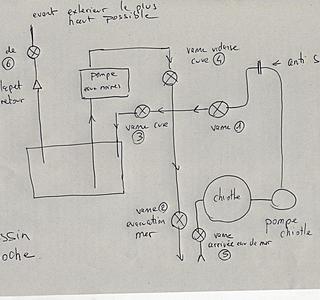 event exterieur le plus
haut possible
de
⑥
clapet
retour
pompe
eaux noires
vanne vidange
cuve ④
anti S
vanne cuve
③
vanne ①
vanne ②
evacuation
mer
chiotte
pompe
chiotte
vanne
arrivée eau de mer
⑤
ssin
oche.